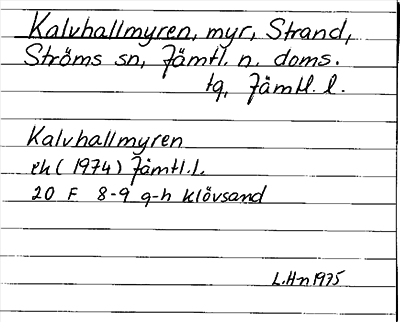 Kalvhallmyren, myr, Strand,
Ströms sn, Jämtl. n. doms.
tg, Jämtl. l.
Kalvhallmyren
ek (1974) Jämtl.l.
20 F 8-9 g-h Klövsand
L.H-n 1975